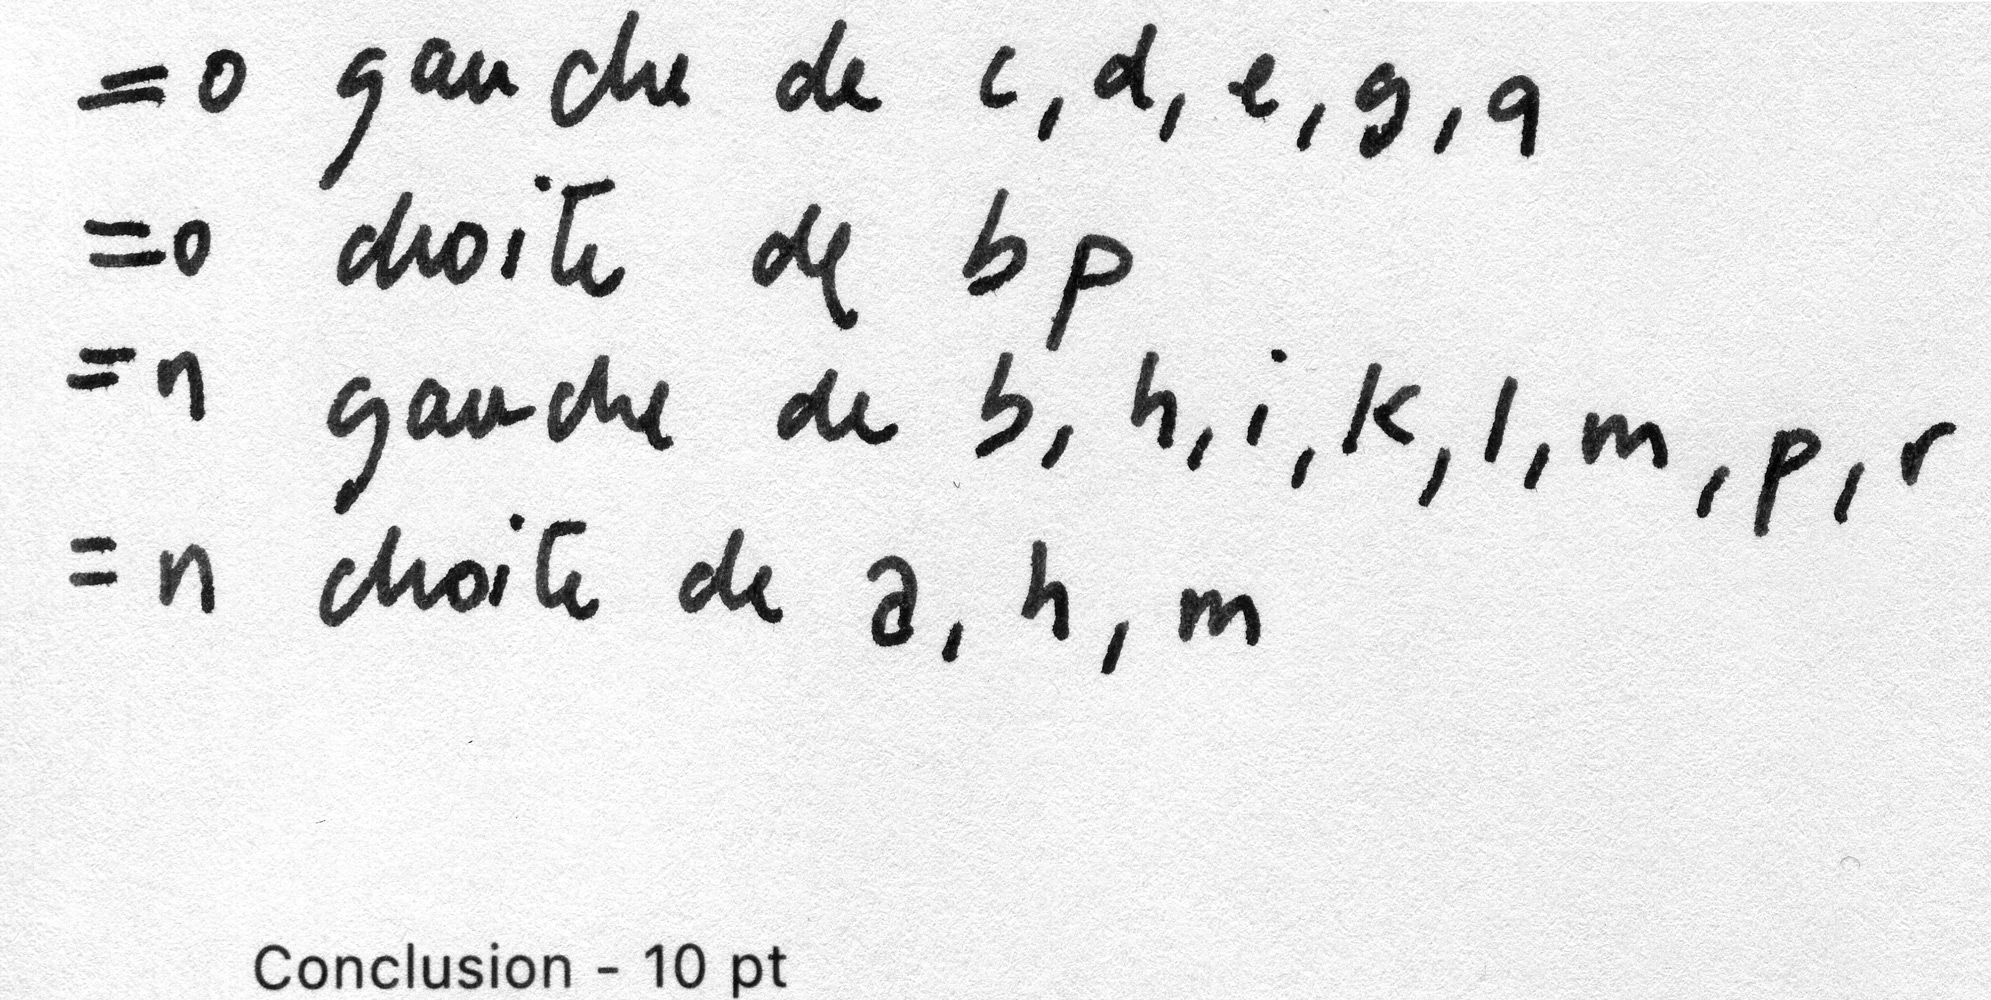 =o gauche de c, d, e, g, q
=o droite de b p
=n gauche de b, h, i, k, l, m, p, r
=n droite de a, h, m
Conclusion - 10 pt